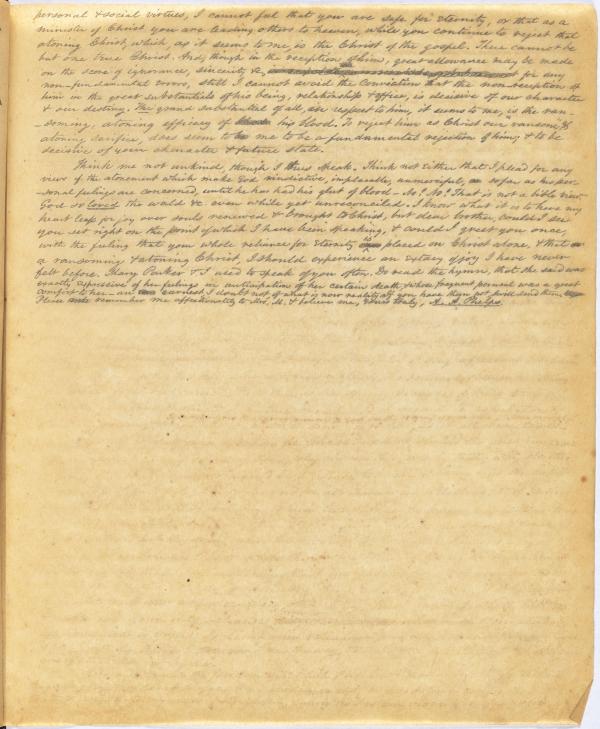 personal & social virtues, I cannot feel that you are safe for eternity, or that as a
minister of Christ you are leading others to heaven, while you continue to reject that
atoning Christ, which, as it seems to me, is the Christ of the gospel. There cannot be
but one true Christ. And, though in the reception of him, great allowance may be made
on the score of ignorance, sincerity &c, for any
non-fundamental errors, still I cannot avoid the conviction that the non-reception of
him in the great substantials of his being, relationship & office, is decisive of our character
& our destiny. The grand substantial of all, in respect to him, it seems to me, is the ran-
-soming, atoning efficacy of his blood. To reject him as Christ our "ransom," &
atoning sacrifice, does seem to me to be a fundamental rejection of him, & to be
decisive of your character & future state.
Think me not unkind, though I thus speak. Think not either that I plead for any
view of the atonement which make God vindictive, implacable, unmerciful, so far as his per-
-sonal feelings are concerned, until he has had his glut of blood - No! No! That is not a bible view
God so loved the world &c. even while yet unreconciled. I know what it is to have my
heart leap for joy over souls renewed & brought to Christ, but dear brother, could I see
you set right on the point of which I have been speaking, & could I greet you once,
with the feeling that you whole reliance for eternity is placed on Christ alone, & that
a ransoming & atoning Christ, I should experience an extacy of joy I have never
felt before. Mary Parker & I used to speak of you often. Do read the hymn, that she said was
exactly expressive of her feelings in anticipation of her certain death, & whose frequent perusal was a great
comfort to her - an earnest I doubt not of what is now reality. If you have them not I will send them,
Please remember me affectionately to Mrs. M. & believe me, Yours truly, A. A. Phelps.